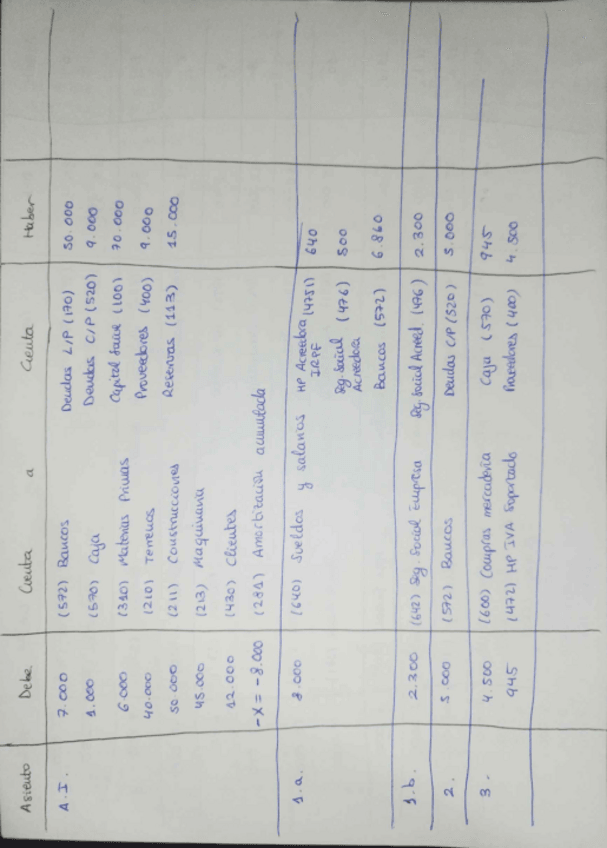 Asiento Debe Cuenta a Cuenta Haber
A.I. 7.000 (572) Bancos Deudas L/P (170) 50.000
1.000 (570) Caja Deudas C/P (520) 9.000
6.000 (310) Materias Primas Capital Social (100) 70.000
40.000 (210) Terrenos Proveedores (400) 9.000
50.000 (211) Construcciones Reservas (113) 15.000
45.000 (213) Maquinaria
12.000 (430) Clientes
-X = -8.000 (281) Amortización acumulada
1.a. 8.000 (640) Sueldos y salarios HP Acreedora (4751) 640
IRPF
Sg. Social (476) 500
Acreedora
Bancos (572) 6.860
1.b. 2.300 (642) Sg. Social Empresa Sg. Social Acreed. (476) 2.300
2. 5.000 (572) Bancos Deudas C/P (520) 5.000
3. 4.500 (600) Compras mercadería Caja (570) 945
945 (472) HP IVA Soportado Proveedores (400) 4.500